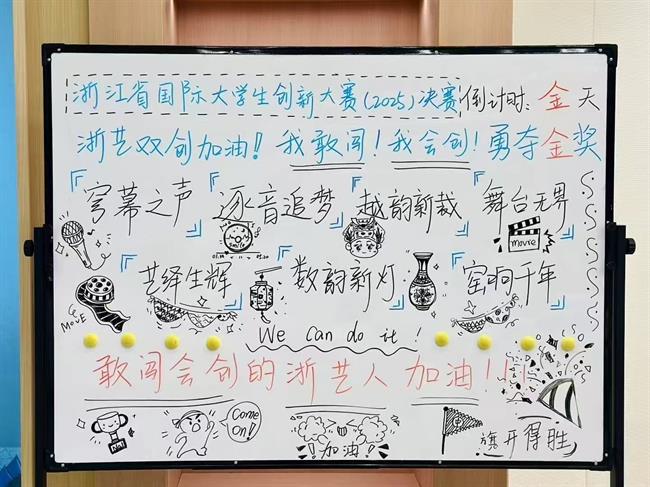 浙江省国际大学生创新大赛(2025)决赛倒计时:金天
浙艺双创加油!我敢闯!我会创!勇夺金奖
『穹幕之声』『逐音追梦』『越韵新裁』『舞台无界』
movie
『艺绎生辉』『数韵新灯』『窑响千年』
MOVIE
We can do it!
敢闯会创的浙艺人加油!!!
No1
Come on!
加油!
旗开得胜